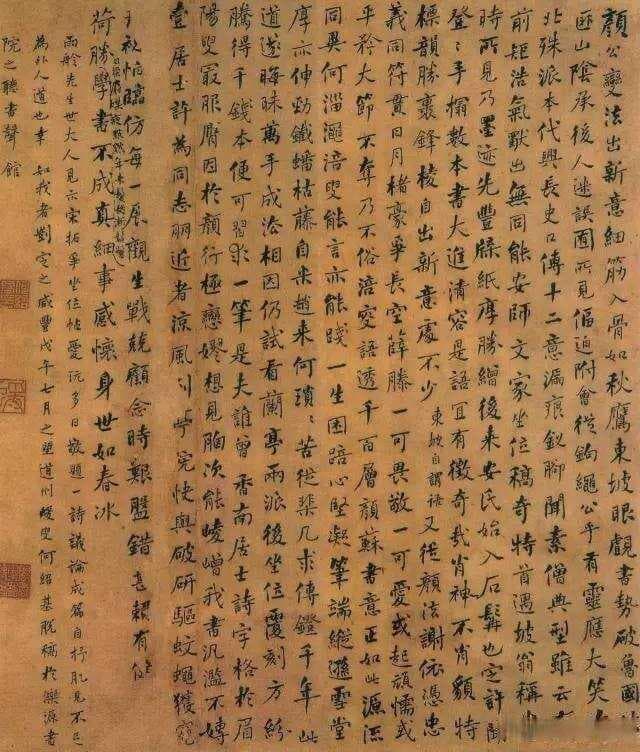 顏公變法出新意細筋入骨如秋鷹東坡眼觀書勢破魯國
山陰承後人迷誤面所見偪迫附會從鍋繩公乎有靈應大笑
北殊派本代興長史口傳十二意漏痕釵腳聞素僧典型雖云
前矩浩氣獸出無同能安師文家坐位稿奇特首遇坡翁稱
時所見乃墨迹先豐縣紙厚勝繒後來安氏始入石也定許
登二手搨數本書大進清容是語宜有徵奇哉肖神不肖貌特
標韻勝裹鋒棱自出新意處不少東坡自謂語又從顏法謝依憑忠
義同符貫日月楮豪爭長空薛滕一可畏敬一可愛或起頑懦或
平矜大節不奪乃不俗涪叟語透千百層顏蘇書意正如此源流
同異何淄澠涪叟能言亦能踐一生困踣心堅凝筆端縱遜雪堂
厚亦伸勁鐵蟠枯藤自米趙來何瑣瑣苦從棐几求傳鐙千年此
道遂晦昧萬手成法相因仍試看蘭亭兩派後坐位覆刻方紛
騰得千錢本便可習求一筆是夫誰曾香南居士詩字格於眉
陽叟冣服膺因於顏行極戀嫪想見胸次能崚嶒我書汎濫不
壹居士許為同志朋近者涼風到學完快與破研驅蚊蠅獲
日臨仿每一展觀生戰兢顧念時艱盤錯甚賴有
荷勝學書不成真細事感懷身世如春冰
雨舲先生世大人見示宋拓爭坐位帖愛玩多日敬題一詩議論成篇自抒肊見不足
為外人道也幸如我者劉定之咸豐戊午七月之望道州蝯叟何紹基脫稿於濼源書
院之聽書聲館